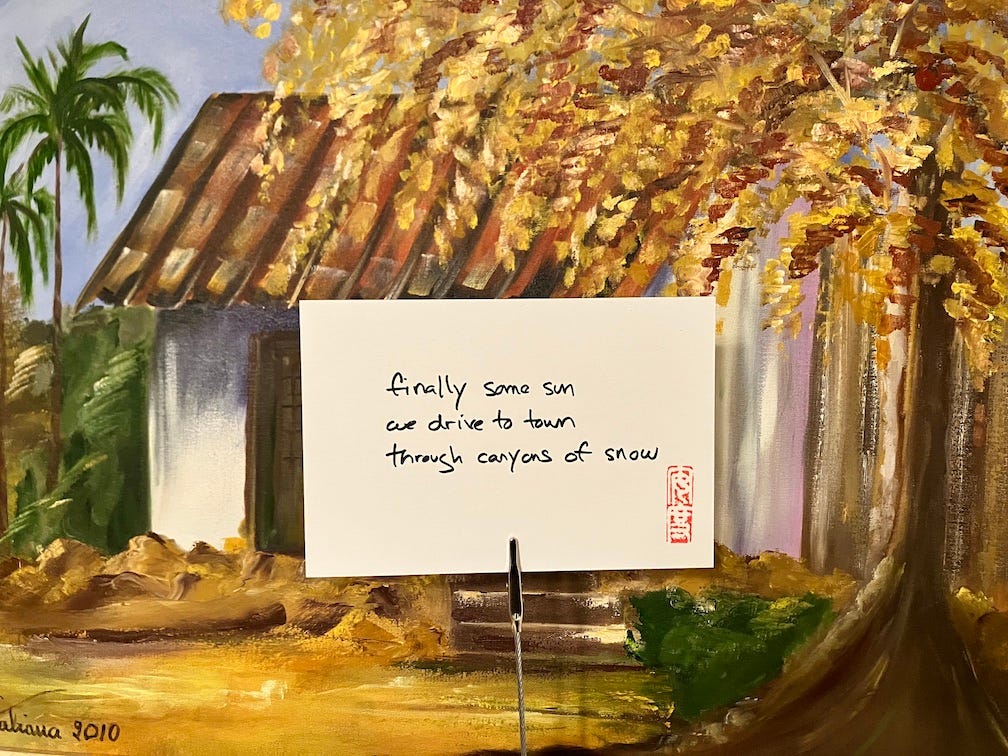 finally some sun
we drive to town
through canyons of snow
2010